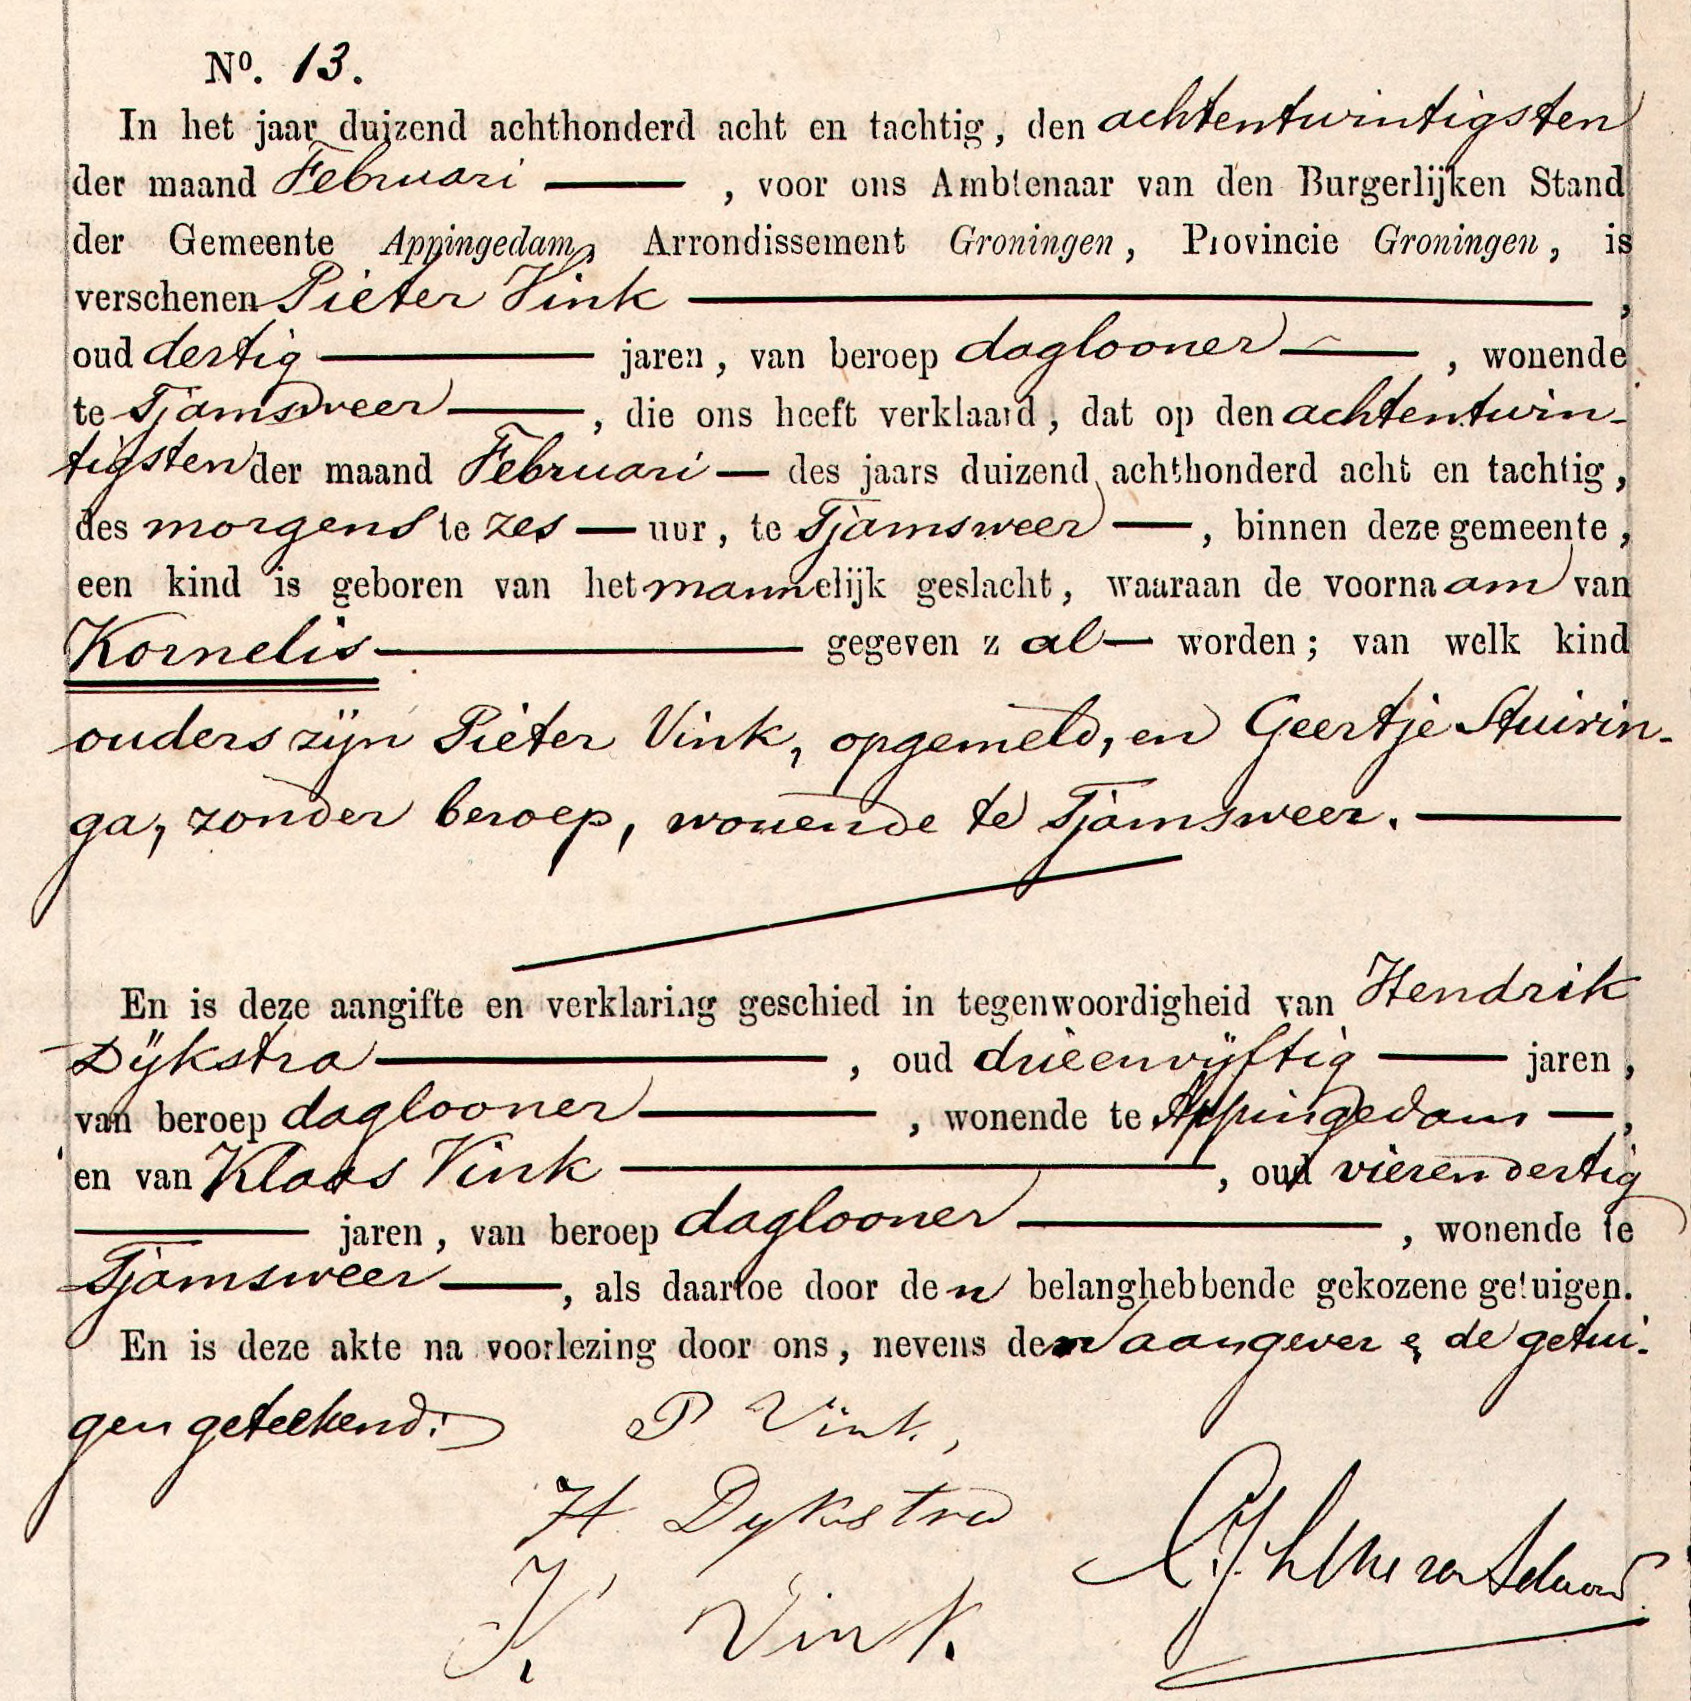 No. 13.
In het jaar duizend achthonderd acht en tachtig, den achtentwintigsten
der maand Februari ——— , voor ons Ambtenaar van den Burgerlijken Stand
der Gemeente Appingedam, Arrondissement Groningen, Provincie Groningen, is
verschenen Pieter Vink ——— ,
oud dertig ——— jaren, van beroep daglooner ——— , wonende
te Tjamsweer ——— , die ons heeft verklaard, dat op den achtentwin-
tigsten der maand Februari — des jaars duizend achthonderd acht en tachtig,
des morgens te zes — uur, te Tjamsweer — , binnen deze gemeente,
een kind is geboren van het mannelijk geslacht, waaraan de voornaam van
Kornelis ——— gegeven zal — worden; van welk kind
ouders zijn Pieter Vink, opgemeld, en Geertje Stuivin-
ga, zonder beroep, wonende te Tjamsweer. ———
En is deze aangifte en verklaring geschied in tegenwoordigheid van Hendrik
Dijkstra ——— , oud drieenvijftig ——— jaren,
van beroep daglooner ——— , wonende te Appingedam — ,
en van Klaas Vink ——— , oud vierendertig
——— jaren, van beroep daglooner ——— , wonende te
Tjamsweer ——— , als daartoe door den belanghebbende gekozene getuigen.
En is deze akte na voorlezing door ons, nevens den aangever & de getui-
gen geteekend.
P Vink,
H Dykstra
K Vink